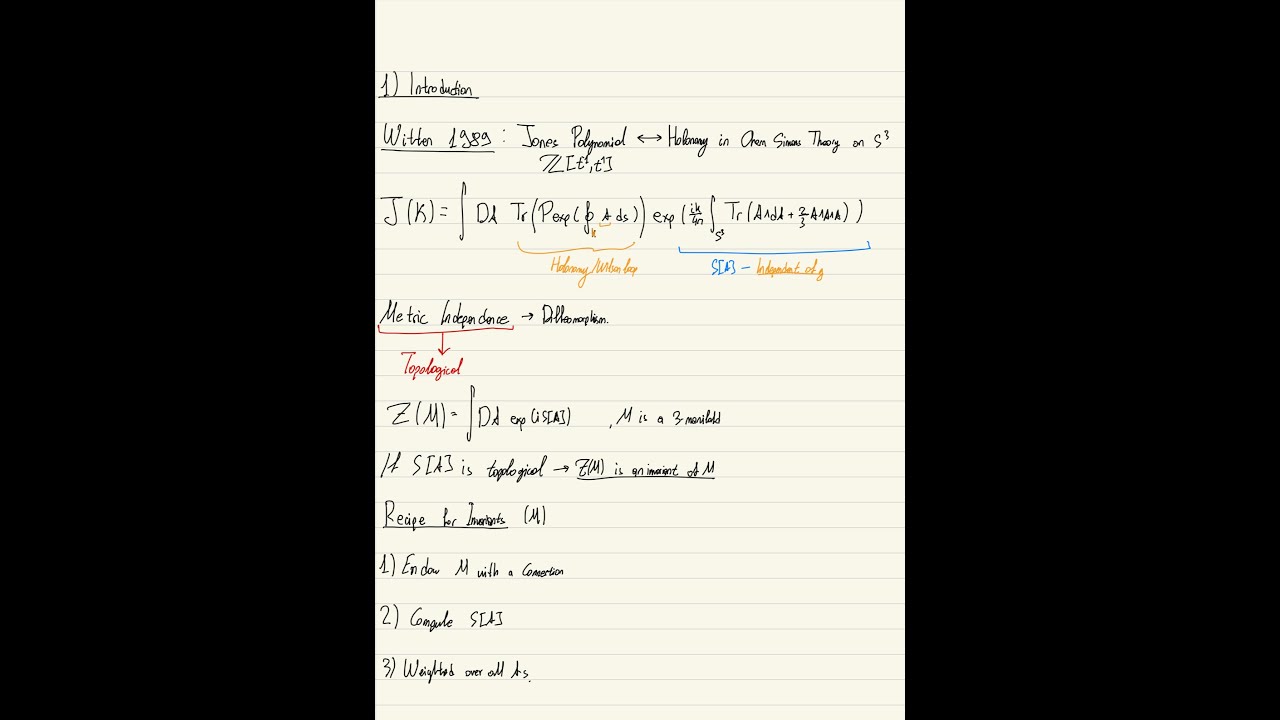 1) Introduction
Witten 1989 : Jones Polynomial ↔ Holonomy in Chern Simons Theory on S³
ℤ[t¹, t⁻¹]
J(K) = ∫ DA Tr(P exp(∮_K A ds)) exp(ik/4π ∫_S³ Tr(A∧dA + 2/3 A∧A∧A))
Holonomy/Wilson loop S[A] – Independent of g
Metric Independence → Diffeomorphism.
Topological
Z(M) = ∫ DA exp(iS[A]) , M is a 3-manifold
If S[A] is topological → Z(M) is an invariant of M
Recipe for Invariants (M)
1) Endow M with a Connection
2) Compute S[A]
3) Weighted over all As.